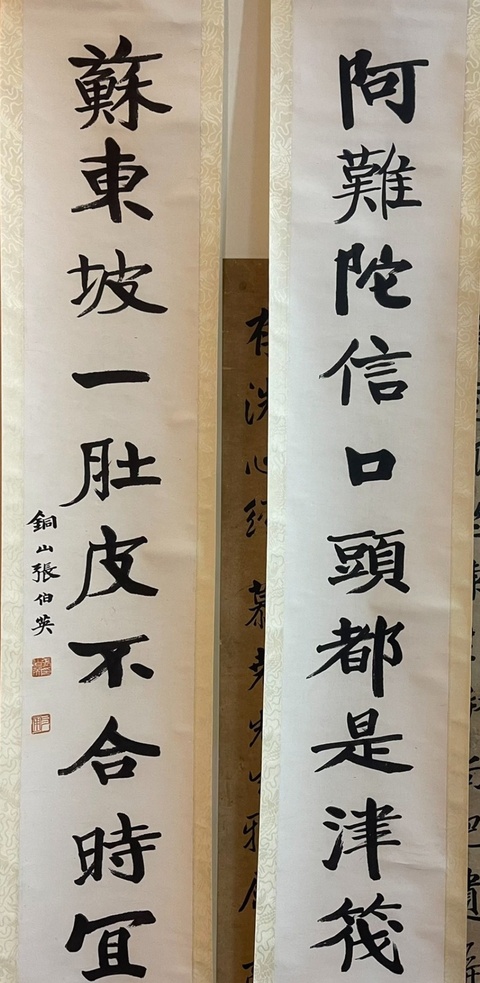 阿難陀信口頭都是津筏
蘇東坡一肚皮不合時宜
銅山張伯英